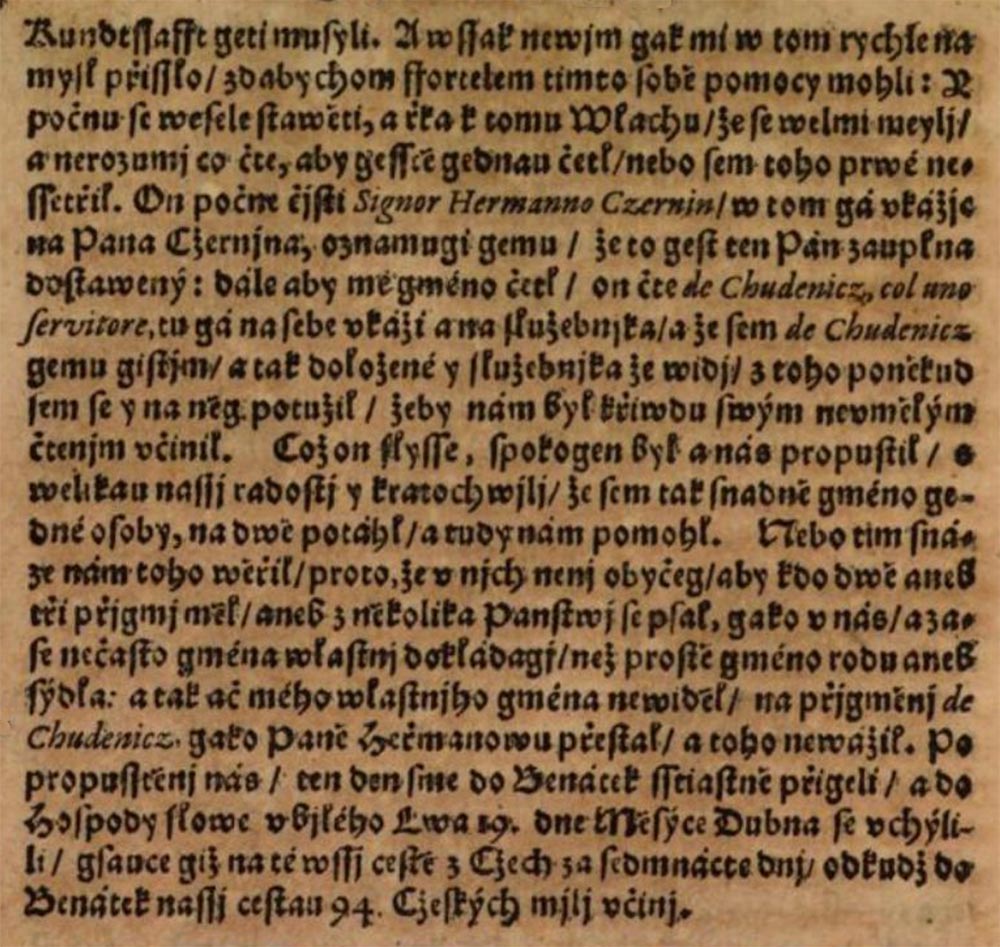 Kundtssafft geti musyli. A wssak newjm gak mi w tom rychle na
mysl přisslo/ zdabychom ffortelem timto sobě pomocy mohli: Y
počnu se wesele stawěti, a řka k tomu Wlachu/ že se welmi meylj/
a nerozumj co čte, aby gesstě gednau četl/ nebo sem toho prwé ne-
ssetřil. On počne čjsti Signor Hermanno Czernin/ w tom gá vkážje
na Pana Czernjna, oznamugi gemu / že to gest ten Pán zauplna
dostawený: dále aby mé gméno četl / on čte de Chudenicz, col uno
servitore, tu gá na sebe vkáži a na služebnjka/ a že sem de Chudenicz
gemu gistjm/ a tak doložené y služebnjka že widj/ z toho poněkud
sem se y na něg potužil / žeby nám byl křiwdu swým nevmělým
čtenjm včinil. Což on slysse, spokogen byl a nás propustil / s
welikau nassj radostj y kratochwjlj/ že sem tak snadně gméno ge-
dné osoby, na dwě potáhl/ a tudy nám pomohl. Nebo tim sná-
ze nám toho wěřil/ proto, že v nich nenj obyčeg/ aby kdo dwě aneb
tři přjgmj měl/ aneb z několika Panstwj se psal, gako v nás/ a za-
se nečasto gména wlastnj dokládagj/ než prostě gméno rodu aneb
sýdla: a tak ač mého wlastnjho gména newiděl/ na přjgměnj de
Chudenicz. gako Paně Heřmanowu přestal/ a toho newážil. Po
propusstěnj nás / ten den sme do Benátek sstiastně přigeli / a do
Hospody slowe v bjlého Lwa 19. dne Měsýce Dubna se vchýli-
li / gsauce giž na té wssj cestě z Czech za sedmnácte dnj/ odkudž do
Benátek nassj cestau 94. Czeských mjlj včinj.